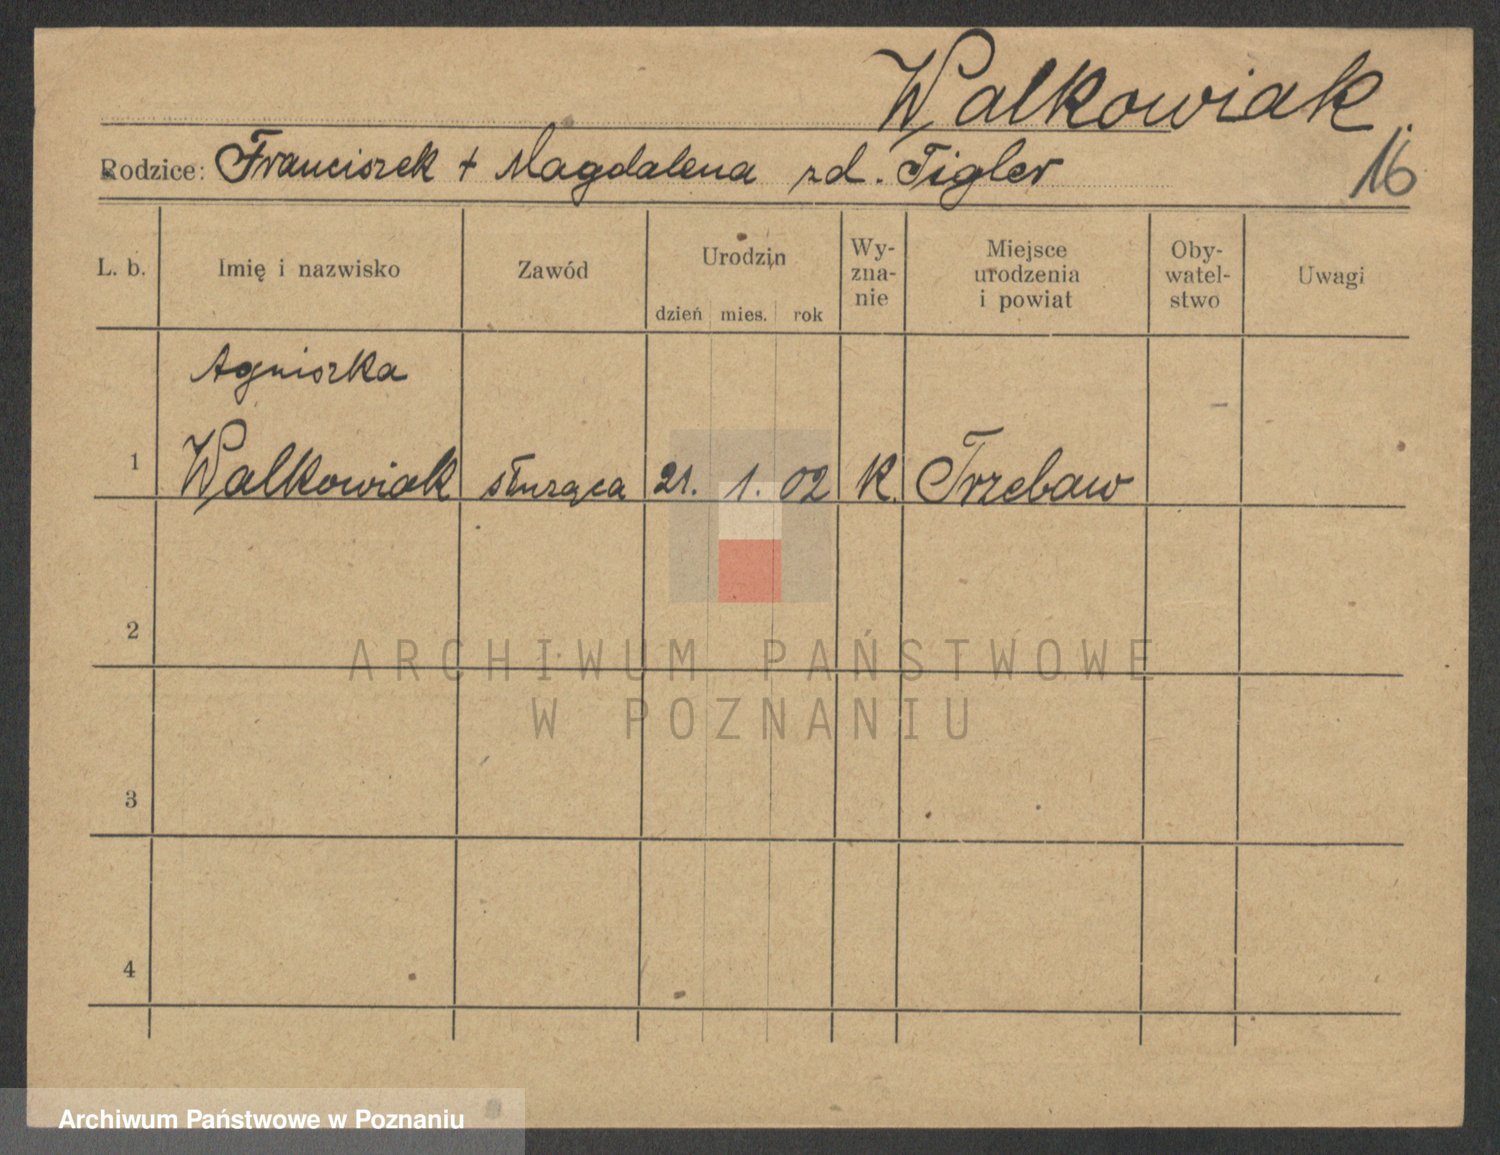 Walkowiak.
Rodzice: Franciszek + Magdalena zd. Tigler
16
L. b. Imię i nazwisko Zawód Urodzin dzień mies. rok Wy-zna-nie Miejsce urodzenia i powiat Oby-watel-stwo Uwagi
Agniszka
1 Walkowiak służąca 21. 1. 02 K. Trzebaw
2
ARCHIWUM PAŃSTWOWE
W POZNANIU
3
4
Archiwum Państwowe w Poznaniu